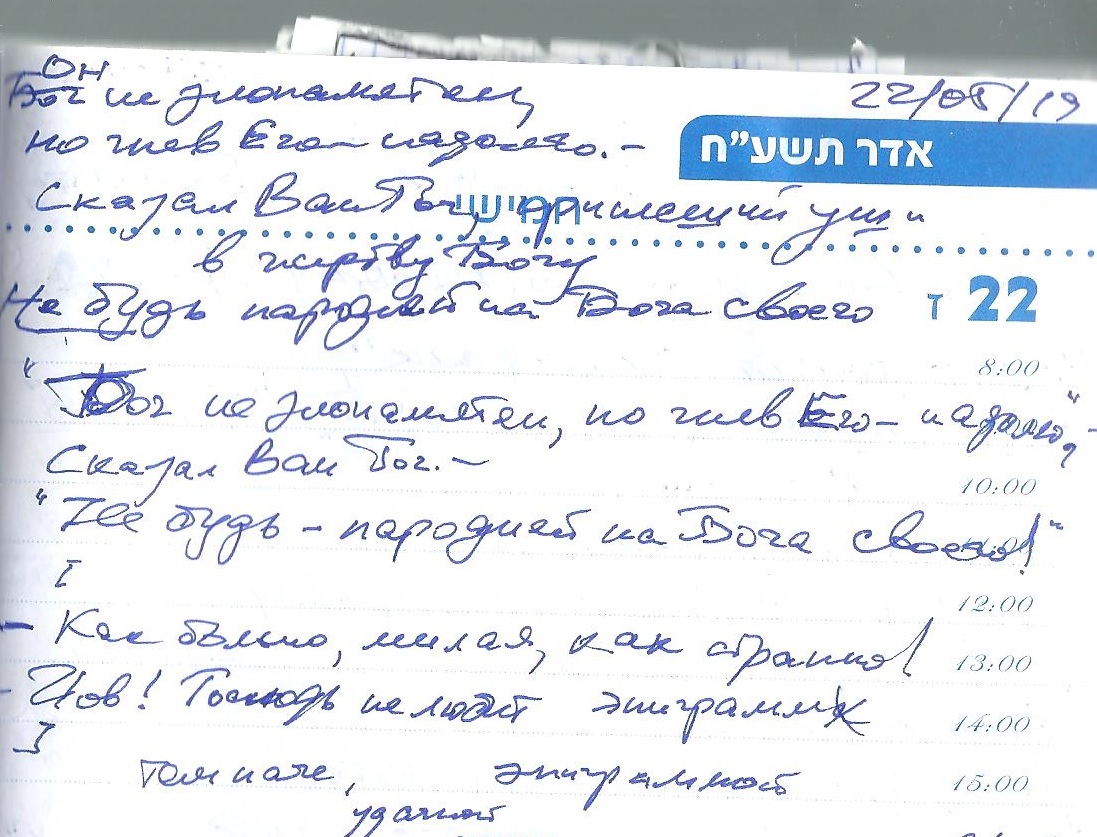 Он
Бог не злопамятен,
22/05/19
но гнев Его надолго. –
אדר תשע"ח
Сказал Ван Гог, принесший уши
חמישי
в жертву Богу
Не будь пародией на Бога своего
ז 22
8:00
"Бог не злопамятен, но гнев Его – надолго", –
Сказал Ван Гог. –
10:00
"Не будь – пародией на Бога своего!"
12:00
– Как больно, милая, как странно!
13:00
– Иов! Господь не любит эпиграмм
14:00
Тем паче, эпиграммой
15:00
удачной